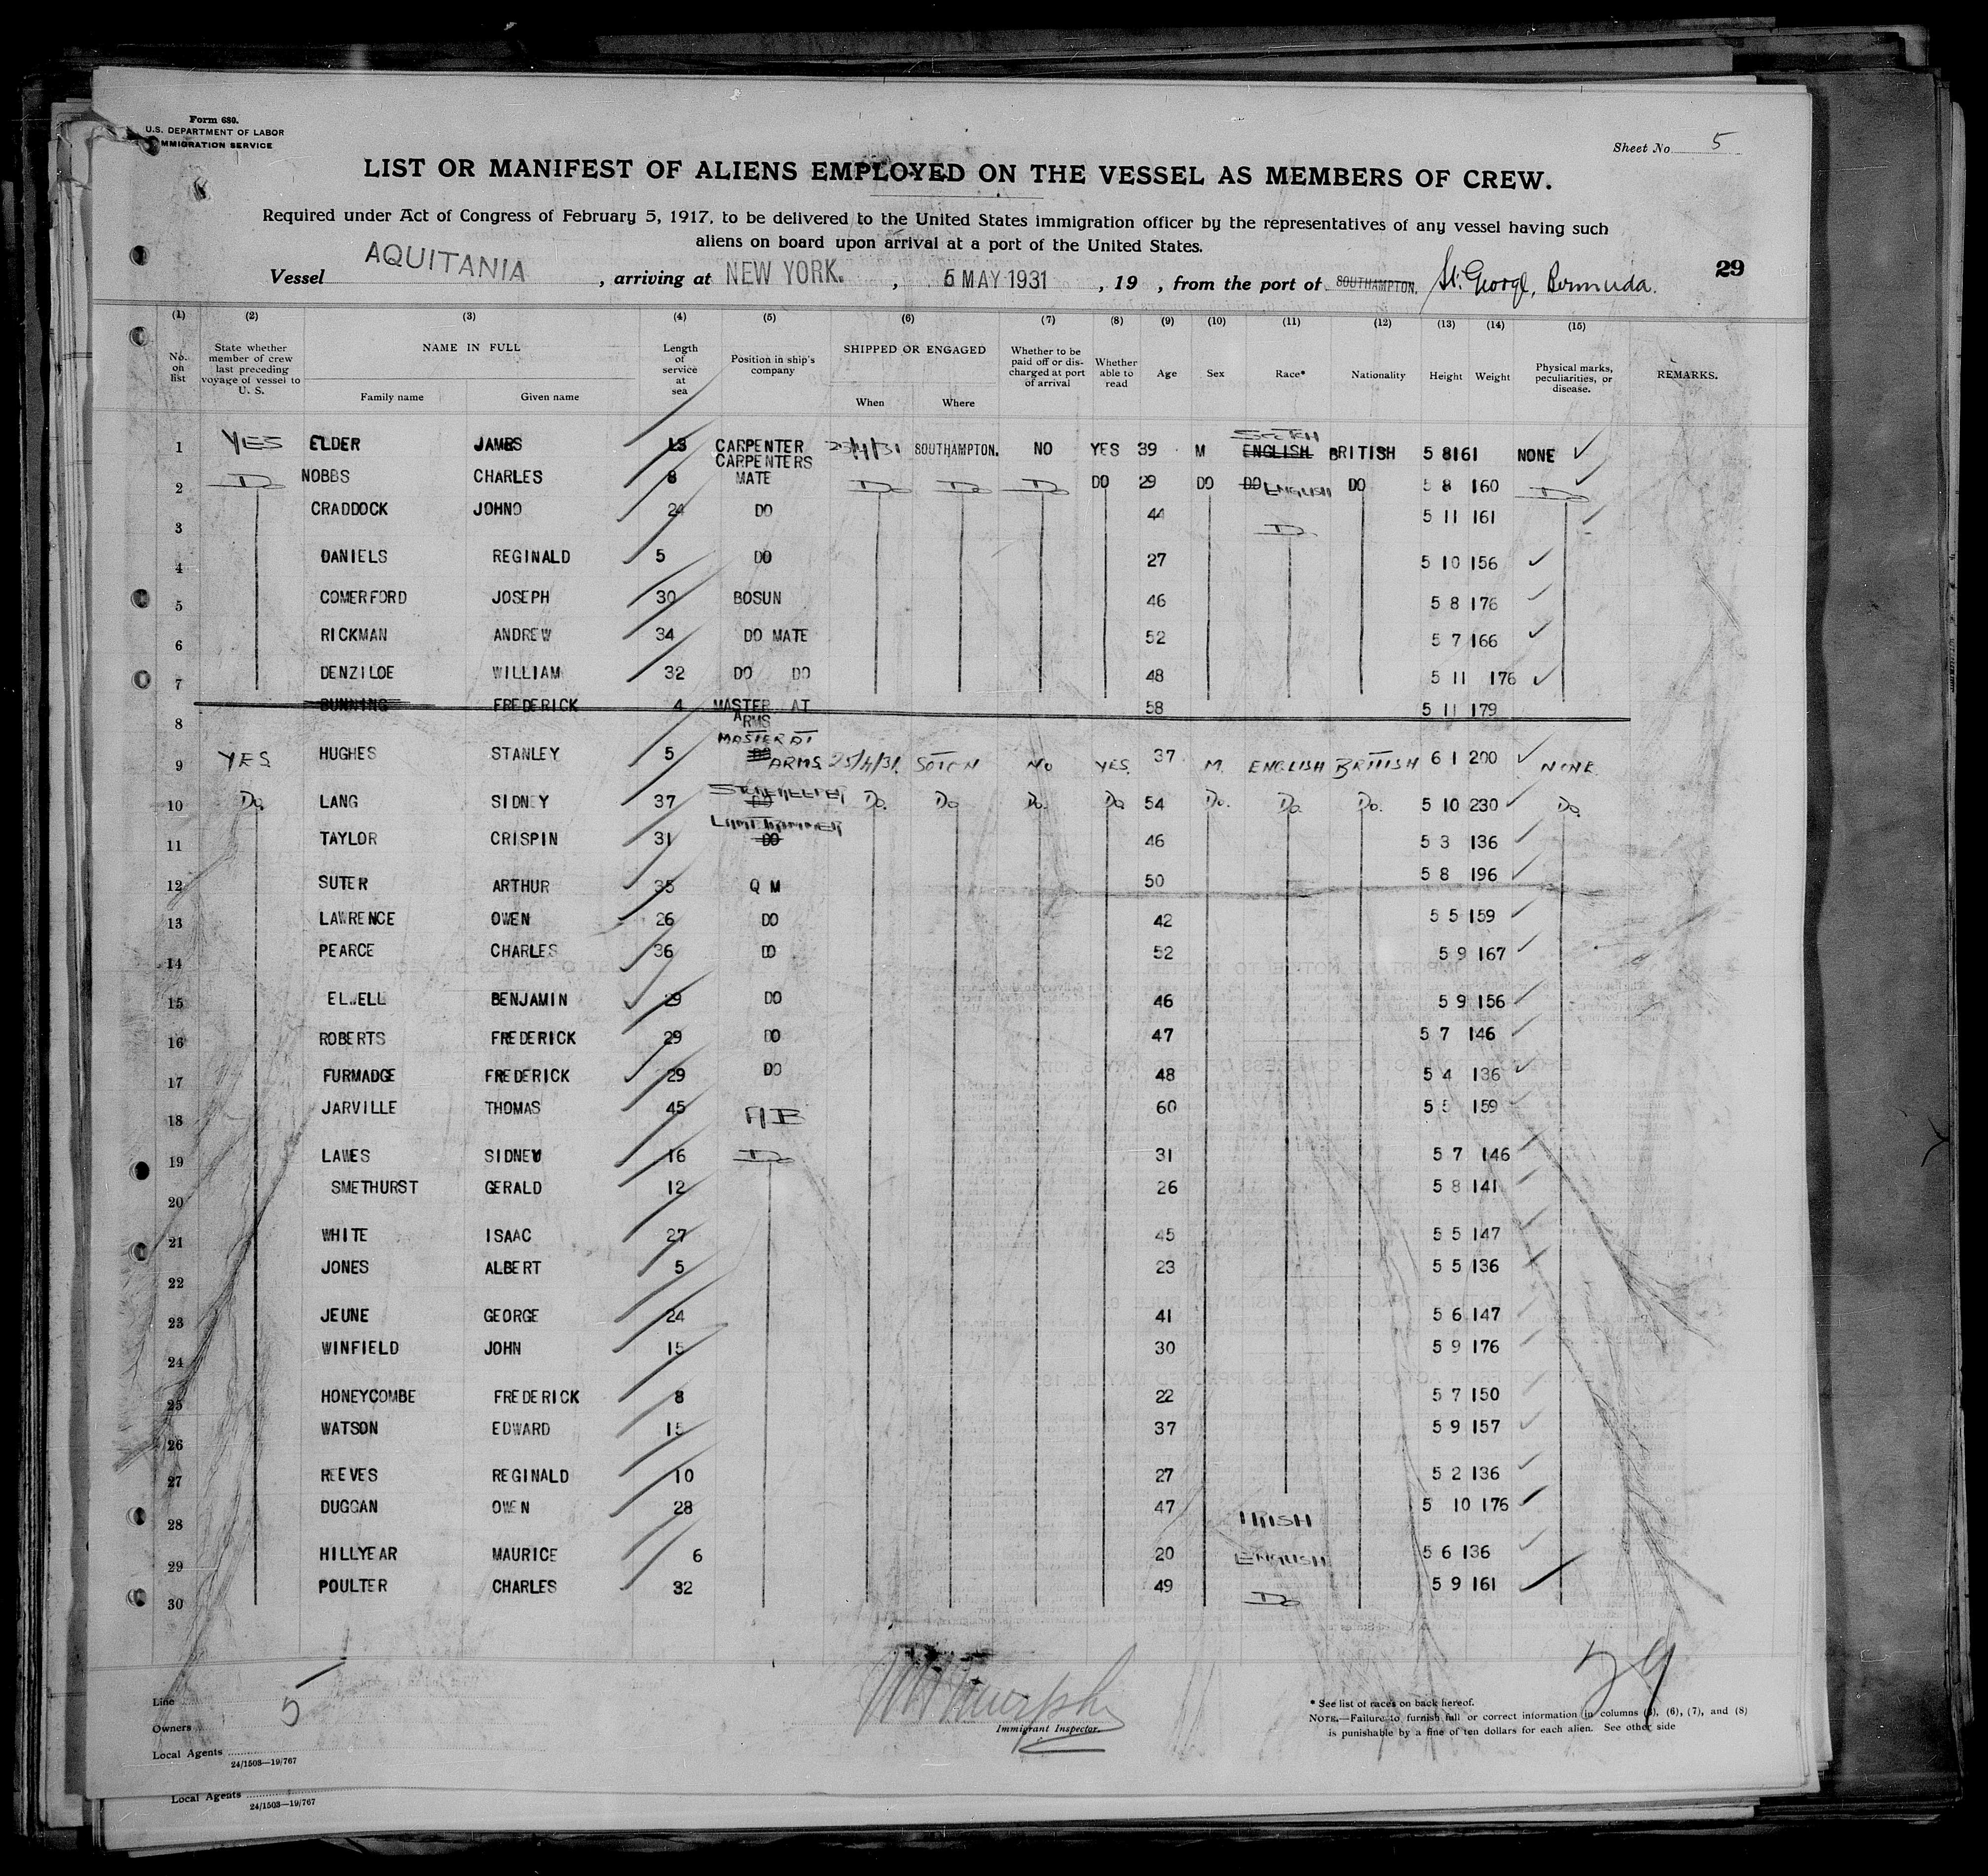 Form 680.
U.S. DEPARTMENT OF LABOR
IMMIGRATION SERVICE
Sheet No 5
LIST OR MANIFEST OF ALIENS EMPLOYED ON THE VESSEL AS MEMBERS OF CREW.
Required under Act of Congress of February 5, 1917, to be delivered to the United States immigration officer by the representatives of any vessel having such
aliens on board upon arrival at a port of the United States.
Vessel AQUITANIA, arriving at NEW YORK., 5 MAY 1931, 19 , from the port of SOUTHAMPTON. St. George, Bermuda. 29
(1) (2) (3) (4) (5) (6) (7) (8) (9) (10) (11) (12) (13) (14) (15)
No. on list State whether member of crew last preceding voyage of vessel to U. S. NAME IN FULL Family name Given name Length of service at sea Position in ship's company SHIPPED OR ENGAGED When Where Whether to be paid off or discharged at port of arrival Whether able to read Age Sex Race* Nationality Height Weight Physical marks, peculiarities, or disease. REMARKS.
1 YES ELDER JAMES 13 CARPENTER 25/4/31 SOUTHAMPTON. NO YES 39 M ENGLISH SCOTCH BRITISH 5 8 161 NONE
2 Do NOBBS CHARLES 8 CARPENTERS MATE Do Do Do DO 29 DO DO ENGLISH DO 5 8 160 Do
3 CRADDOCK JOHNO 24 DO 44 Do 5 11 161
4 DANIELS REGINALD 5 DO 27 5 10 156
5 COMERFORD JOSEPH 30 BOSUN 46 5 8 176
6 RICKMAN ANDREW 34 DO MATE 52 5 7 166
7 DENZILOE WILLIAM 32 DO DO 48 5 11 176
8 BUNNING FREDERICK 4 MASTER AT ARMS 58 5 11 179
9 YES HUGHES STANLEY 5 DO MASTER AT ARMS 25/4/31. SOTON NO YES. 37 M. ENGLISH BRITISH 6 1 200 NONE.
10 Do. LANG SIDNEY 37 DO Do. Do Do. Do 54 Do. Do. Do. 5 10 230 Do.
11 TAYLOR CRISPIN 31 DO LAMPTRIMMER 46 5 3 136
12 SUTER ARTHUR 35 Q M 50 5 8 196
13 LAWRENCE OWEN 26 DO 42 5 5 159
14 PEARCE CHARLES 36 DO 52 5 9 167
15 ELWELL BENJAMIN 29 DO 46 5 9 156
16 ROBERTS FREDERICK 29 DO 47 5 7 146
17 FURMADGE FREDERICK 29 DO 48 5 4 136
18 JARVILLE THOMAS 45 AB 60 5 5 159
19 LAWES SIDNEY 16 Do 31 5 7 146
20 SMETHURST GERALD 12 26 5 8 141
21 WHITE ISAAC 27 45 5 5 147
22 JONES ALBERT 5 23 5 5 136
23 JEUNE GEORGE 24 41 5 6 147
24 WINFIELD JOHN 15 30 5 9 176
25 HONEYCOMBE FREDERICK 8 22 5 7 150
26 WATSON EDWARD 15 37 5 9 157
27 REEVES REGINALD 10 27 5 2 136
28 DUGGAN OWEN 28 47 IRISH 5 10 176
29 HILLYEAR MAURICE 6 20 ENGLISH 5 6 136
30 POULTER CHARLES 32 49 Do 5 9 161
29
Line
5
Owners
Local Agents
24/1503—19/767
Immigrant Inspector.
* See list of races on back hereof.
NOTE.—Failure to furnish full or correct information in columns (3), (6), (7), and (8)
is punishable by a fine of ten dollars for each alien. See other side
Local Agents
24/1503—19/767